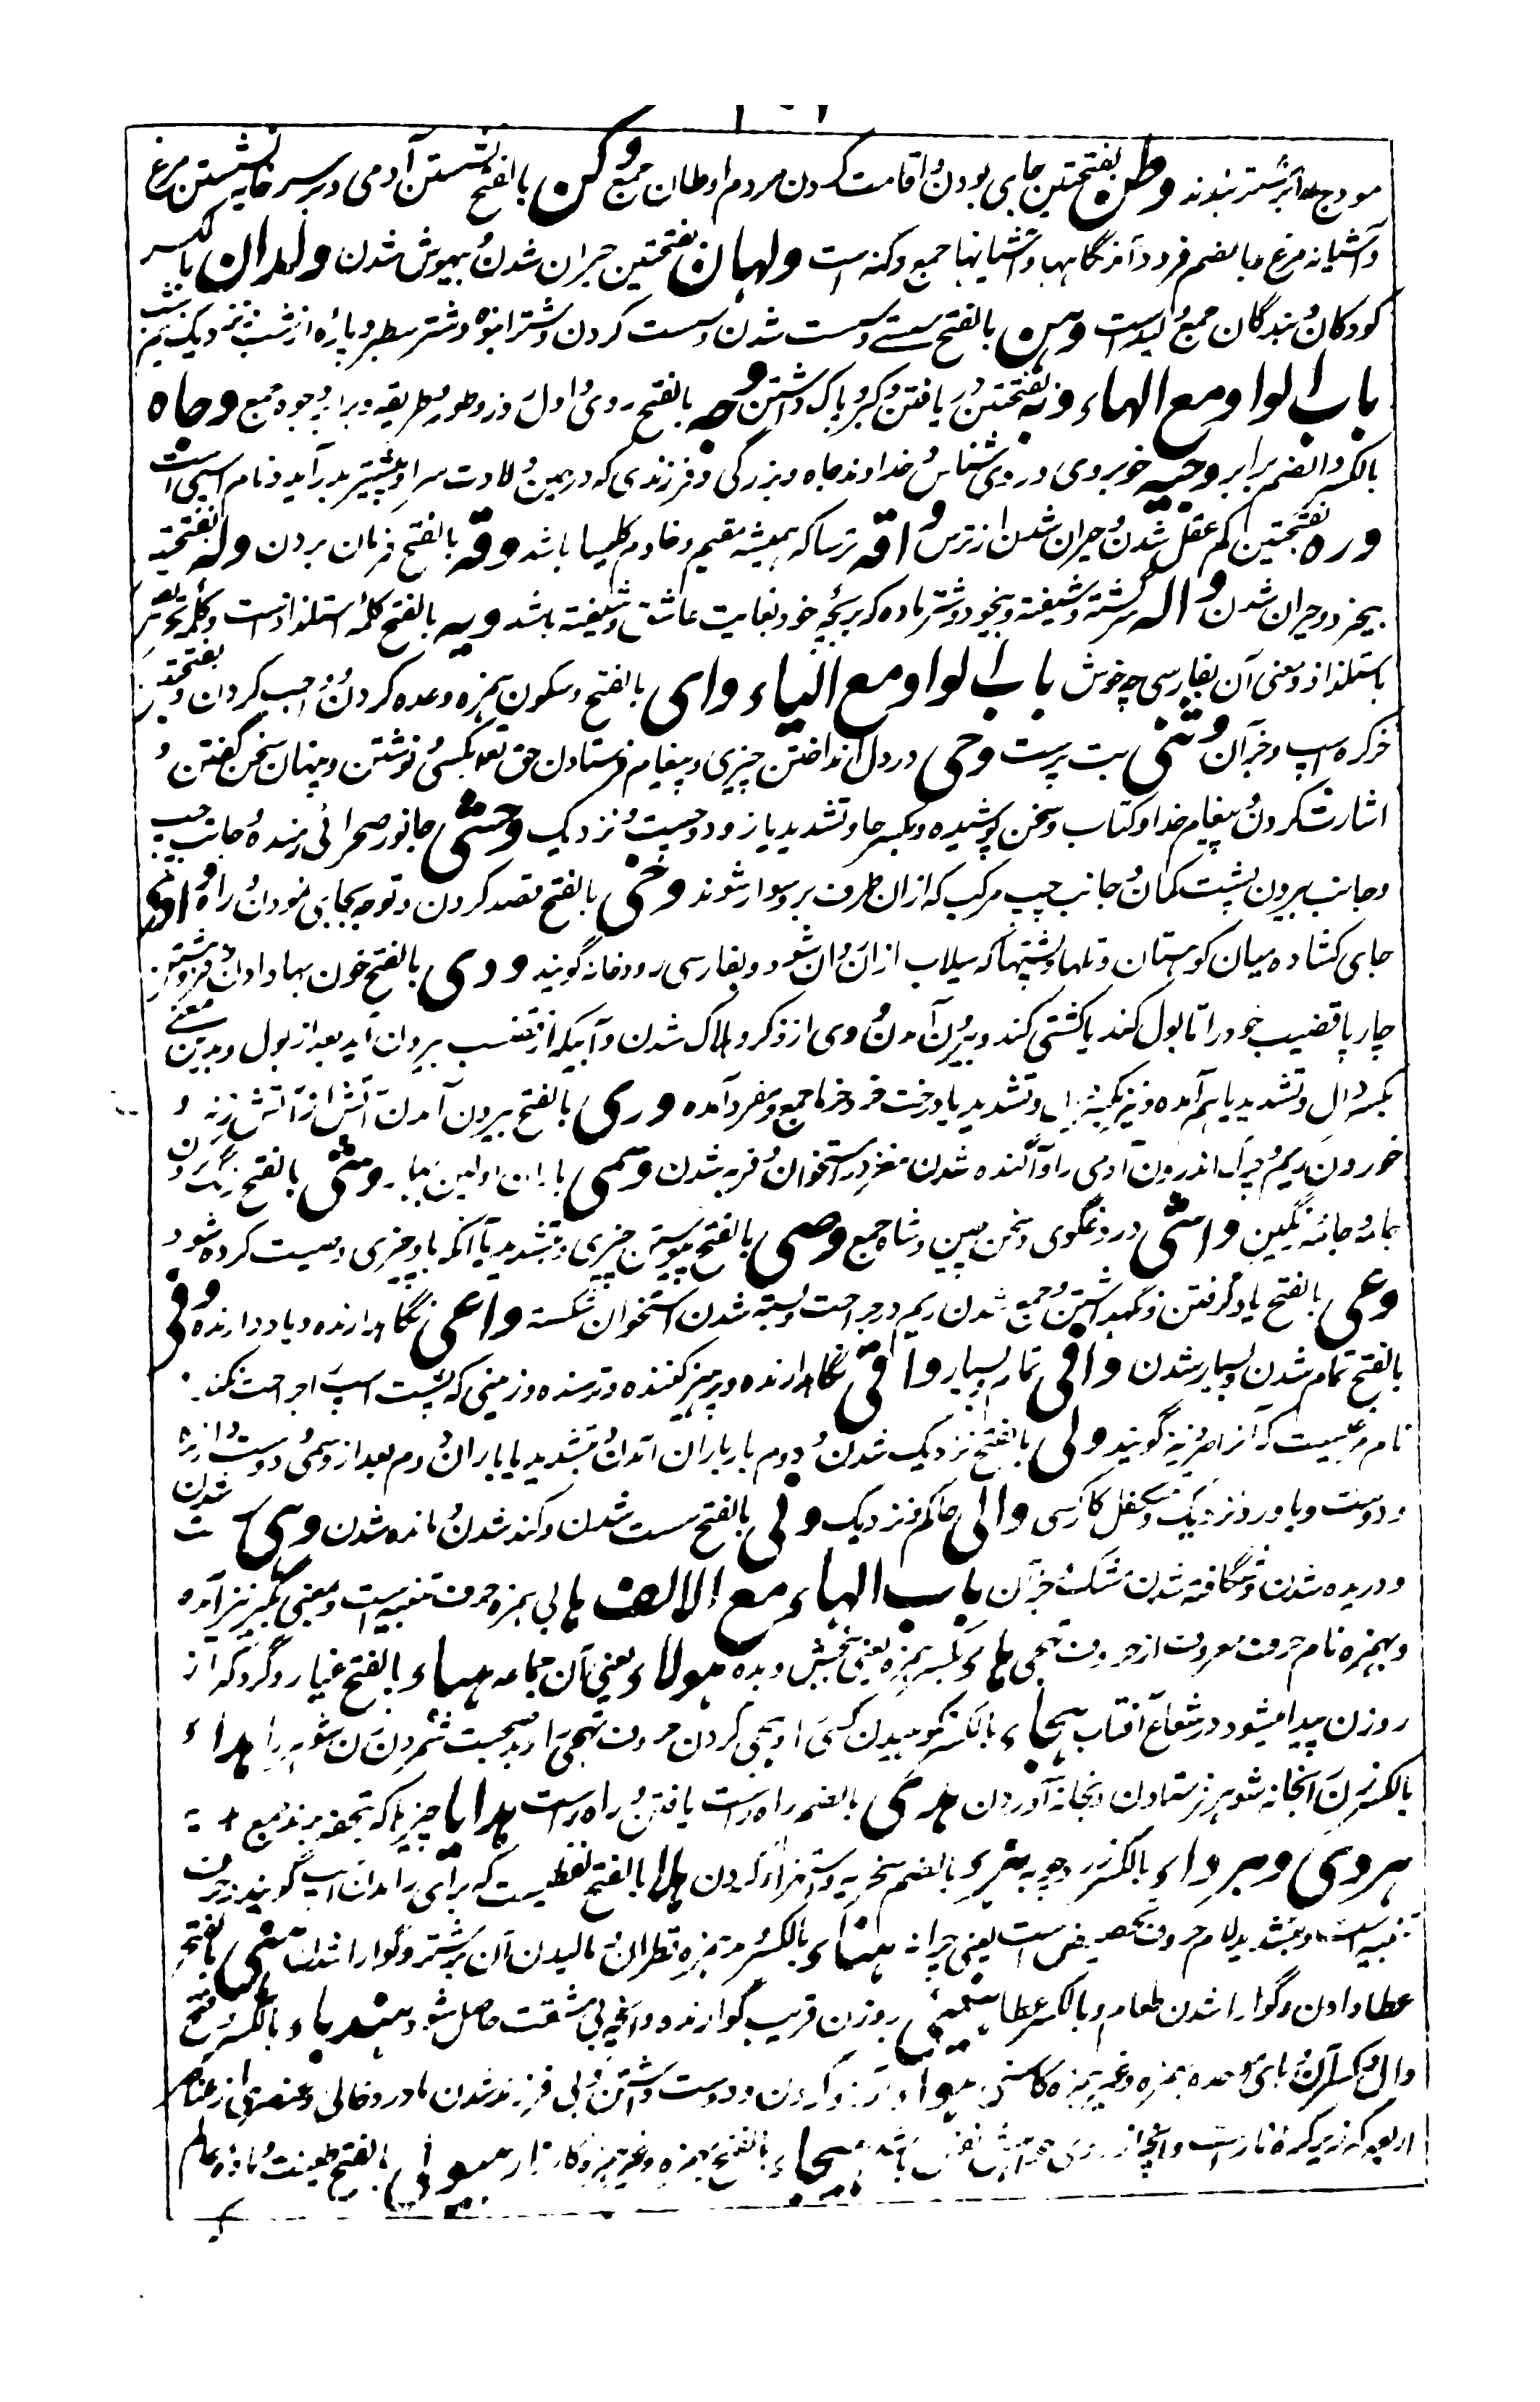 هودج بر شتر بندند وطن بفتحتین جای بودن و اقامت کردن مردم اوطان جمع وکن بالفتح نشستن آدمی و بر سر خایه نشستن مرغ
و آشیانه مرغ و بالضم فرود آمدنگاهها و آشیانها جمع وکنه است ولهان بفتحتین حیران شدن و بیهوش شدن ولدان بالکسر
کودکان و بندگان جمع ولید است وهن بالفتح سستی و سست شدن و سست کردن و شتر انبوه و شتر سطبر و پاره از شب نزدیک نیم شب
باب الواو مع الهاء وبه بفتحتین دریافتن و کبر و باک داشتن وجه بالفتح روی و اول روز و طور و طریقه و برابر وجوه جمع وجاه
بالکسر والضم برابر وجیه خوبروی و روی شناس و خداوند جاه و بزرگی و فرزندی که در حین ولادت سر او پیشتر بدر آید و نام اسپی است
وره بفتحتین کم عقل شدن و حیران شدن از ترس وافه ترسا که همیشه مقیم و خادم کلیسا باشد وقه بالفتح فرمان بردن وله بفتحتین
بیخرد و حیران شدن واله سرگشته و شیفته و بیخود و شتر ماده که بر بچه خود بغایت عاشق و شیفته باشد ویه بالفتح کلمه استلذاذ است و کلمه تحریص
باستلذاذ و معنی آن بفارسی چه خوش باب الواو مع الیاء وای بالفتح و سکون همزه وعده کردن و واجب کردن و بفتحتین
خر کره اسپ و جز آن وثنی بت پرست وحی در دل انداختن چیزی و پیغام فرستادن حق تعالی بکسی و نوشتن و پنهان سخن گفتن و
اشارت کردن و پیغام خدا و کتاب و سخن پوشیده و بکسر حا و تشدید یا زود و چست و نزدیک وحشی جانور صحرائی رمنده و جانب چپ
و جانب بیرون پشت کمان و جانب چپ مرکب که ازان طرف برو سوار شوند وخی بالفتح قصد کردن و توجه بجایی نمودن و راه وادی
جای کشاده میان کوهستان و تلها و پشتها که سیلاب ازان روان شود و بفارسی رودخانه گویند ودی بالفتح خون بها دادن و فروهشتن
چارپا قضیب خود را تا بول کند یا کشتی کند و بیرون آمدن ودی از ذکر و هلاک شدن و آبیکه از قضیب بیرون آید بعد از بول و بدین معنی
بکسر دال و تشدید یا هم آمده و نیز بکسر دال و تشدید یا درخت خرد خرما جمع و مفرد آمده وری بالفتح بیرون آمدن آتش از آتش زنه و
خوردن ریم و چرک اندرون آدمی را و آگنده شدن مغز در استخوان و فربه شدن وسمی باران اولین بهار وشی بالفتح رنگ کردن
جامه و جامه رنگین واشی دروغگوی و سخن چین وشاه جمع وصی بالفتح پیوستن چیزی و بتشدید یا آنکه باو چیزی وصیت کرده شود
وعی بالفتح یاد گرفتن و نگهداشتن و جمع شدن ریم در جراحت و بسته شدن استخوان شکسته واعی نگاهدارنده و یاد دارنده وفی
بالفتح تمام شدن و بسیار شدن وافی تمام و بسیار واقی نگاهدارنده و پرهیز کننده و ترسنده و زمینی که پشت اسپ را جراحت کند
نام مرغیست که آنرا گویند ولی بالفتح نزدیک شدن و دوم بار باران آمدن و بتشدید یا باران دوم بعد از وسمی و دوست
و دوست و یاور و نزدیک و متکفل کار کسی والی حاکم و نزدیک ونی بالفتح سست شدن و کند شدن و مانده شدن وهی سست شدن
و دریده شدن و شگافته شدن مشک و جز آن باب الهاء مع الالف ها بی همزه حرف تنبیه است و بمعنی بگیر نیز آمده
و بهمزه نام حرف معروف از حروف تهجی هاء بکسر همزه یعنی ببخش و بده هولاء یعنی آن جماعه هباء بالفتح غبار و گرد که از
روزن پیدا میشود در شعاع آفتاب هجاء بالکسر نکوهیدن کسی را و هجی کردن حروف تهجی را و صحبت شمردن زن شوهر را هداء
بالکسر زن را بخانه شوهر فرستادن و بخانه آوردن هدی بالضم راه راست یافتن و راه راست هدایا چیزها که تحفه برند جمع هدیه
هردی و هرداء بالکسر زرد چوبه هزء بالضم سخریه و استهزاء کردن هلا بالفتح لفظیست که برای راندن اسپ گویند و حرف
تنبیه است و بتشدید لام حرف تحضیض است یعنی چرا نه هناء بالکسر و همزه قطران و مالیدن آن بر شتر و گوارا شدن هنی بالفتح
عطا دادن و گوارا شدن طعام و بالکسر عطا هنیئی بر وزن قریب گوارنده و آنچه بی مشقت حاصل شود هندباء بالکسر و فتح
دال و کسر آن و بای موحده بهمزه و غیر همزه کاسنی هواء آرزو کردن و دوست داشتن و بی فرزند شدن مادر و خالی و عنصری از عناصر
اربعه که زیر کره نار است و آنچه از هیجاء بالفتح بهمزه و غیر همزه کارزار هیولی بالفتح طینت و ماده عالم